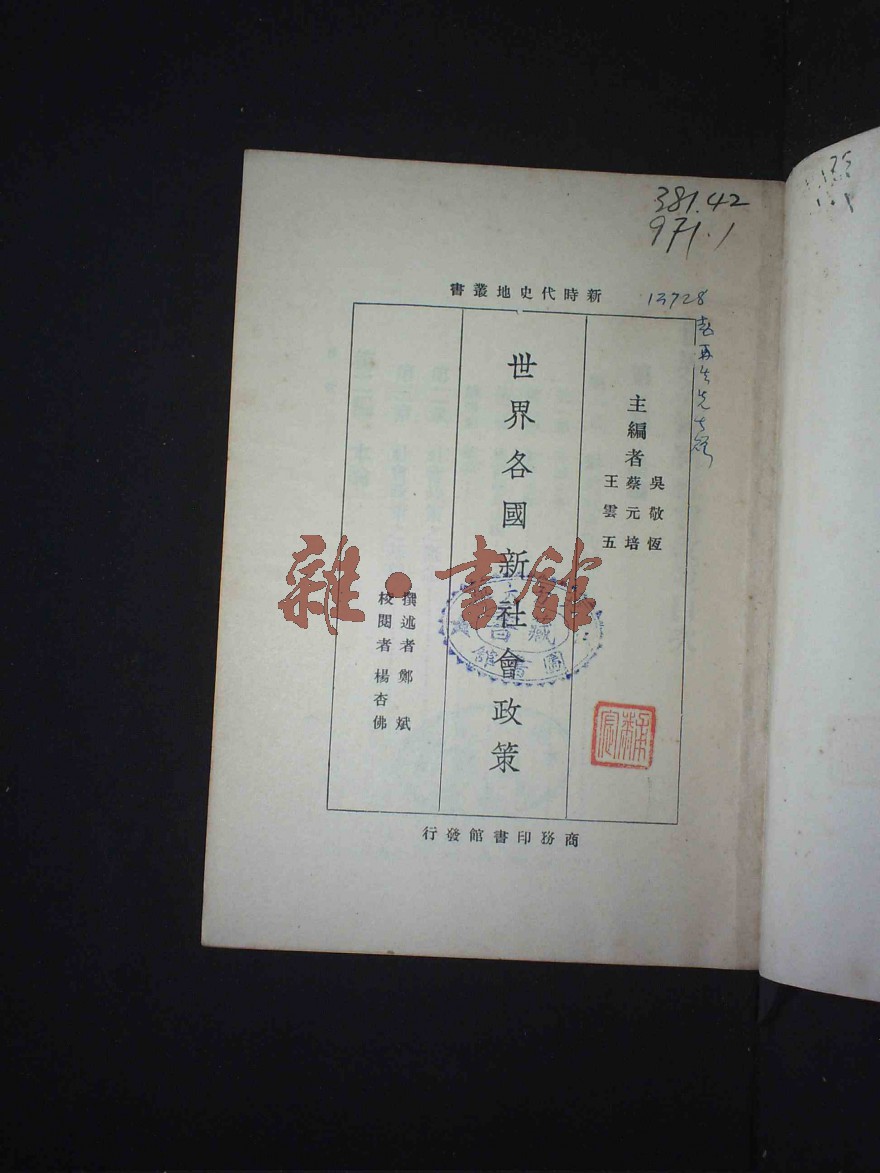 381.42
971.1
13728
新時代史地叢書
主編者
吳敬恆
蔡元培
王雲五
世界各國新社會政策
撰述者 鄭斌
校閱者 楊杏佛
商務印書館發行
雜•書館
藏書
圖書館